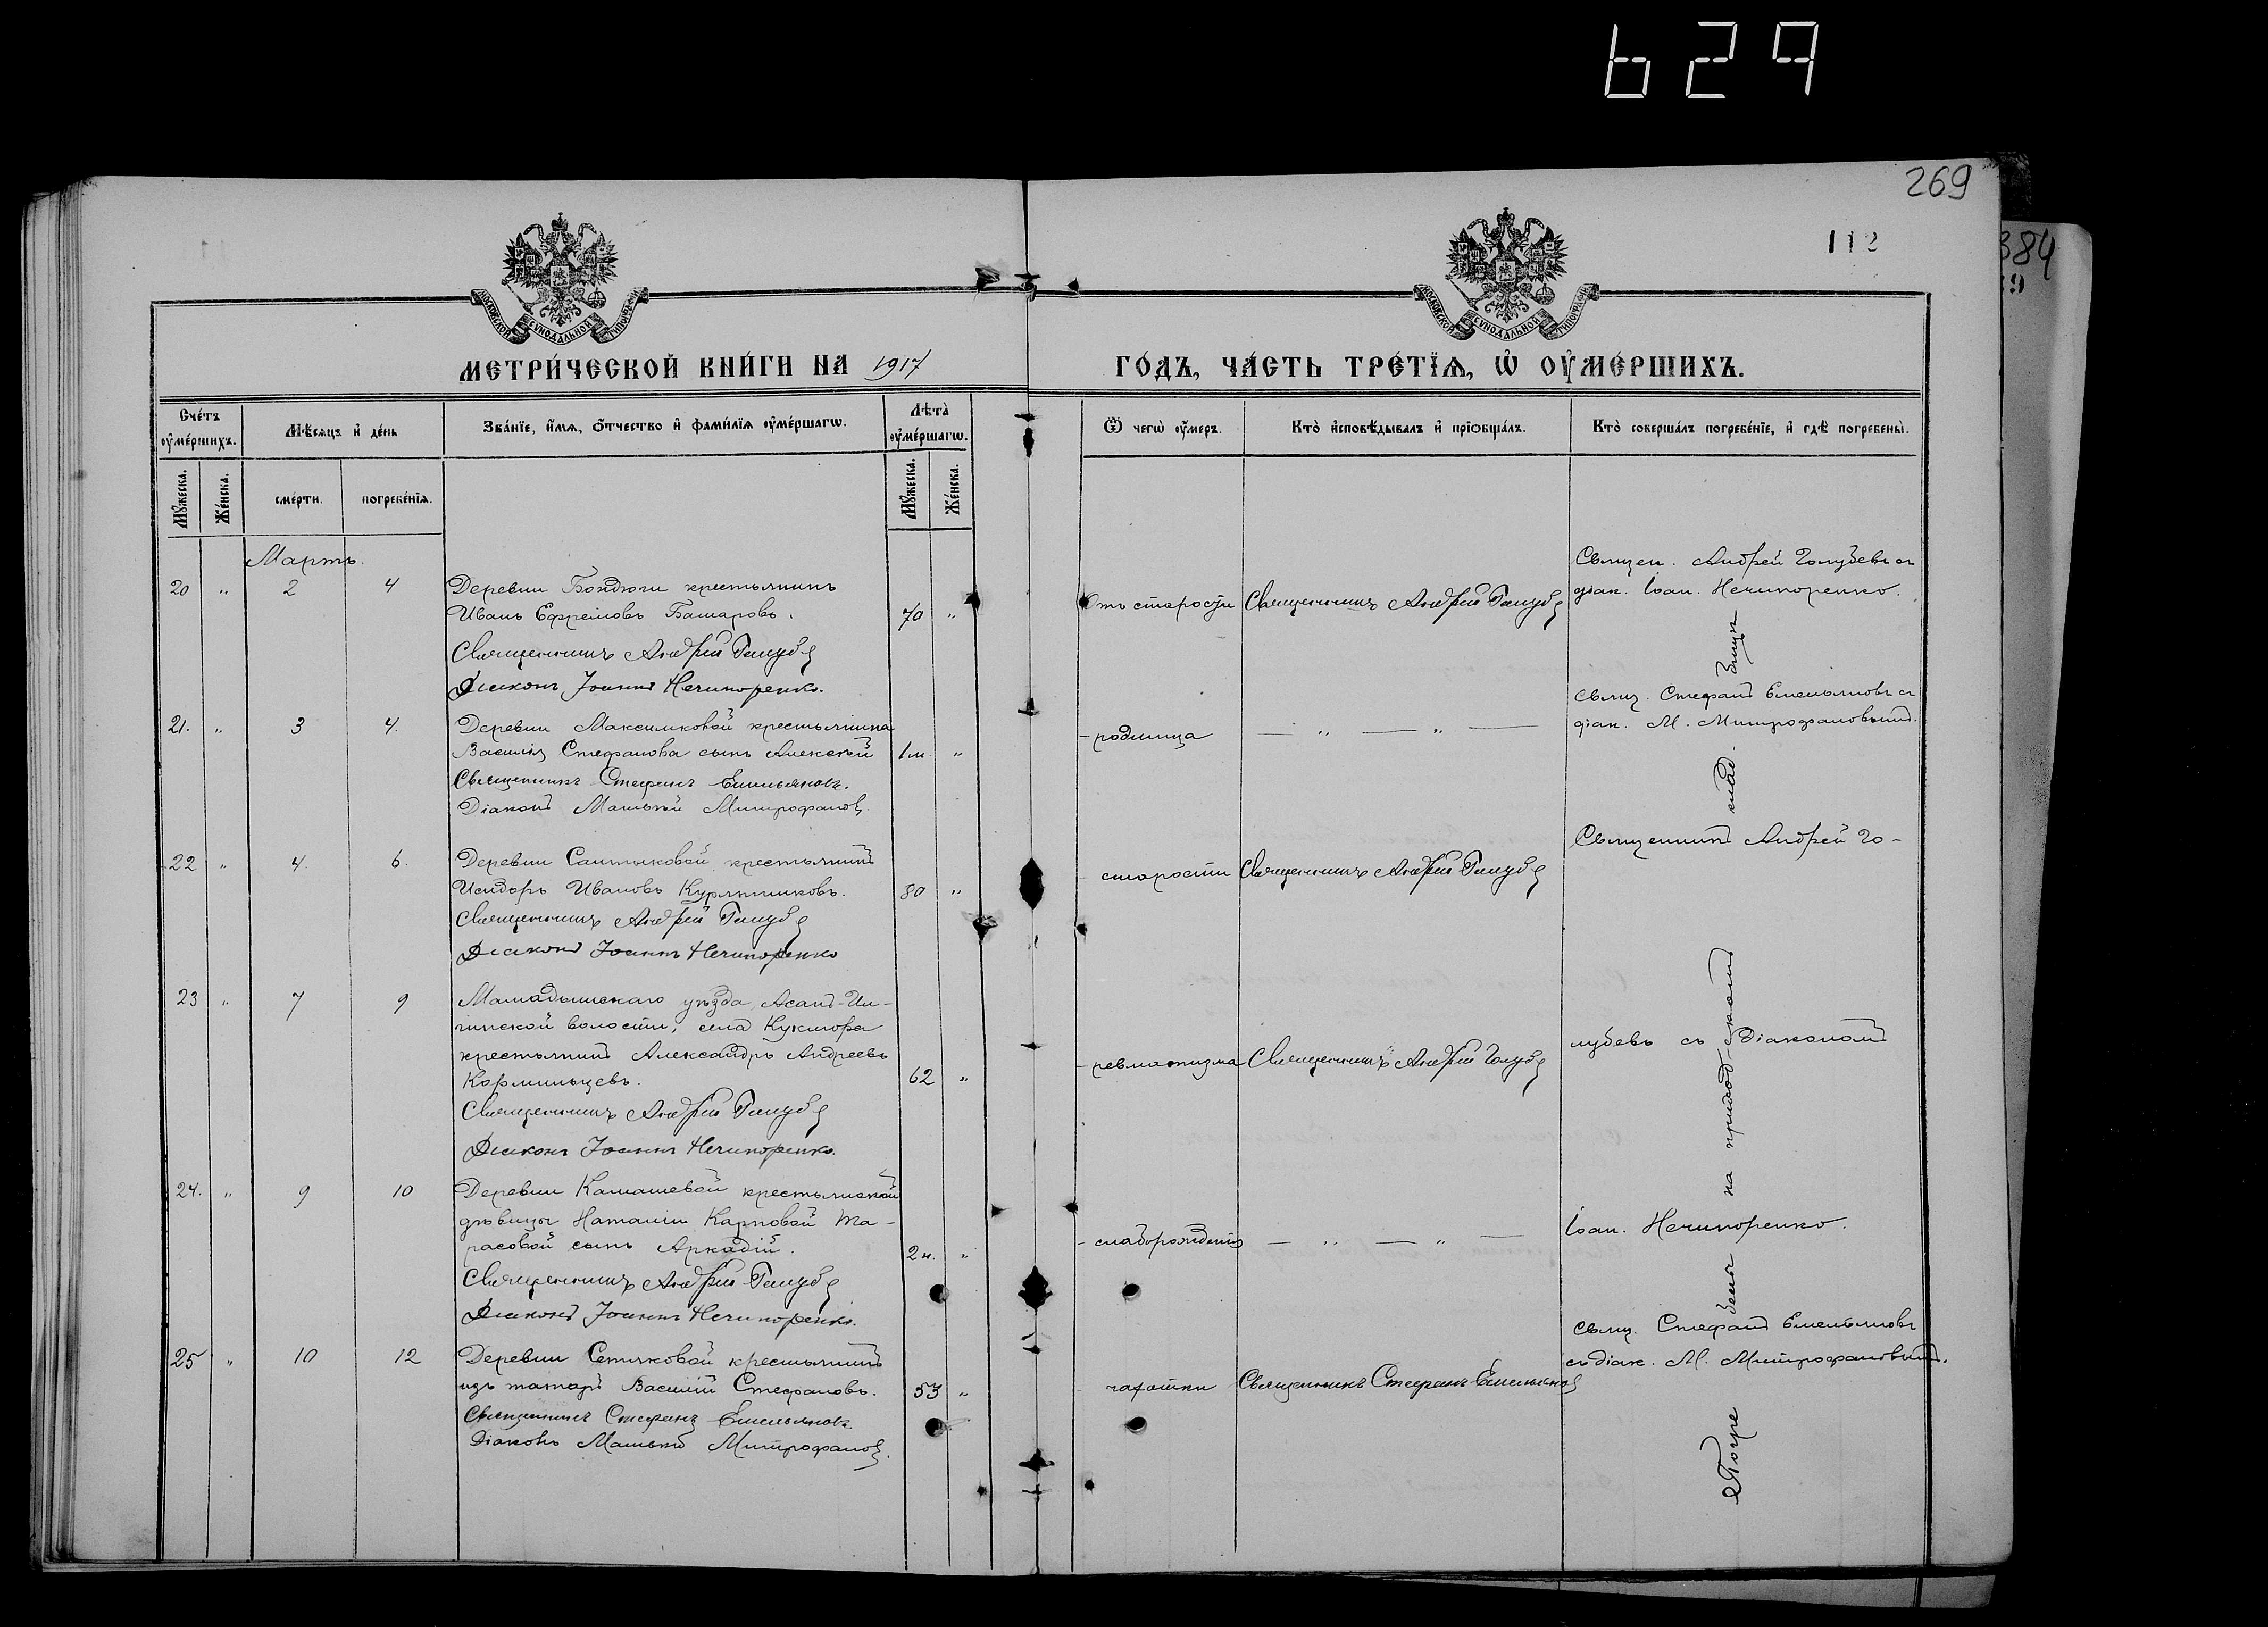 629
269
112
384
МОСКОВСКОЙ СУНОДАЛЬНОЙ ТИПОГРАФІИ
МОСКОВСКОЙ СУНОДАЛЬНОЙ ТИПОГРАФІИ
МЕТРИ́ЧЕСКОЙ КНИ́ГИ НА 1917
ГО́ДЪ, ЧА́СТЬ ТРЕ́ТЇѦ, Ѡ҆ ОУ҆МЕ́РШИХЪ.
Сче́тъ оу҆ме́ршихъ.
Мѣ́сяцъ и҆ де́нь
Зва́нїе, и҆́мѧ, ѻ҆́тчество и҆ фами́лїѧ оу҆ме́ршагѡ.
Лѣ́та оу҆ме́ршагѡ.
Ѿ чегѡ̀ оу҆́меръ.
Кто̀ и҆сповѣ́дывалъ и҆ прїѡбща́лъ.
Кто̀ соверша́лъ погребе́нїе, и҆ гдѣ̀ погребены̀.
Мꙋ́жеска.
Же́нска.
сме́рти.
погребе́нїѧ.
Мꙋ́жеска.
Же́нска.
Мартъ.
20 " 2 4 Деревни Бондюги крестьянинъ
Иванъ Ефремовъ Башаровъ. 70 "
Священникъ Андрей Голубев
Діаконъ Іоаннъ Нечипоренко.
Отъ старости Священникъ Андрей Голубев
Священ. Андрей Голубевъ съ
діак. Іоан. Нечипоренко.
21. " 3 4. Деревни Максимковой крестьянина
Василія Стефанова сынъ Алексѣй 1 м "
Священникъ Стефанъ Емельяновъ.
Діаконъ Матвѣй Митрофанов
- родимца — " — " —
свящ. Стефанъ Емельяновъ съ
діак. М. Митрофановымъ.
22 " 4. 6. Деревни Сантыковой крестьянинъ
Исидоръ Ивановъ Курлянниковъ. 80 "
Священникъ Андрей Голубев
Діаконъ Іоаннъ Нечипоренко
старости Священникъ Андрей Голубев
Священникъ Андрей Го-
23 " 7 9 Мамадышскаго уѣзда, Асанъ-Ил-
гинской волости, села Кукмора
крестьянинъ Александръ Андреевъ
Кормильцевъ. 62 "
Священникъ Андрей Голубев
Діаконъ Іоаннъ Нечипоренко.
- ревматизма Священникъ Андрей Голубев
лубевъ съ діакономъ
24. " 9 10 Деревни Камашевой крестьянской
дѣвицы Наталіи Карповой Та-
расовой сынъ Аркадій. 2 н. "
Священникъ Андрей Голубев
Діаконъ Іоаннъ Нечипоренко.
- слаборожденія — " — " —
Іоан. Нечипоренко.
25 " 10 12 Деревни Сетяковой крестьянинъ
изъ татаръ Василій Стефановъ. 53 "
Священникъ Стефанъ Емельяновъ.
Діаконъ Матвѣй Митрофанов.
чахотки Священникъ Стефанъ Емельянов
свящ. Стефанъ Емельяновъ
съ діак. М. Митрофановымъ.
Погребены на приход-скомъ клад-бищѣ